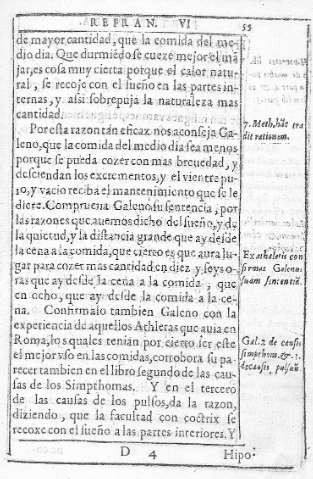 REFRAN. VI
55
de mayor cantidad, que la comida del me-
dio dia. Que durmiẽdo se cueze mejor el mã
jar, es cosa muy cierta porque el calor natu-
ral, se recoje con el sueño en las partes in-
ternas, y assi sobrepuja la naturaleza mas
cantidad.
Por esta razon tan eficaz nos aconseja Ga-
leno, que la comida del medio dia sea menos
porque se pueda cozer con mas breuedad, y
desciendan los excrementos, y el vientre pu-
ro, y vacio reciba el mantenimiento que se le
diere. Comprueua Galeno su sentencia, por
las razones que auemos dicho del sueño, y de
la quietud, y la distancia grande que ay desde
la cena a la comida, que cierto es que aura lu-
gar para cozer mas cantidad en diez y seys o-
ras que ay desde la cena a la comida, que
en ocho, que ay desde la comida a la ce-
na. Confirmalo tambien Galeno con la
experiencia de aquellos Athleras que auia en
Roma, los quales tenian por cierto ser este
el mejor vso en las comidas, corrobora su pa-
recer tambien en el libro segundo de las cau-
sas de los Simpthomas. Y en el tercero
de las causas de los pulsos, da la razon,
diziendo, que la facultad con coctrix se
recoxe con el sueño a las partes interiores. Y
D 4
Hipo:
7. Meth, hãc tra
dit rationem.
Ex athaletis con
firmat Galenus
suam sententiã.
Gal. 2 de causis
simpthom. &. 3.
de causis, pulsuũ